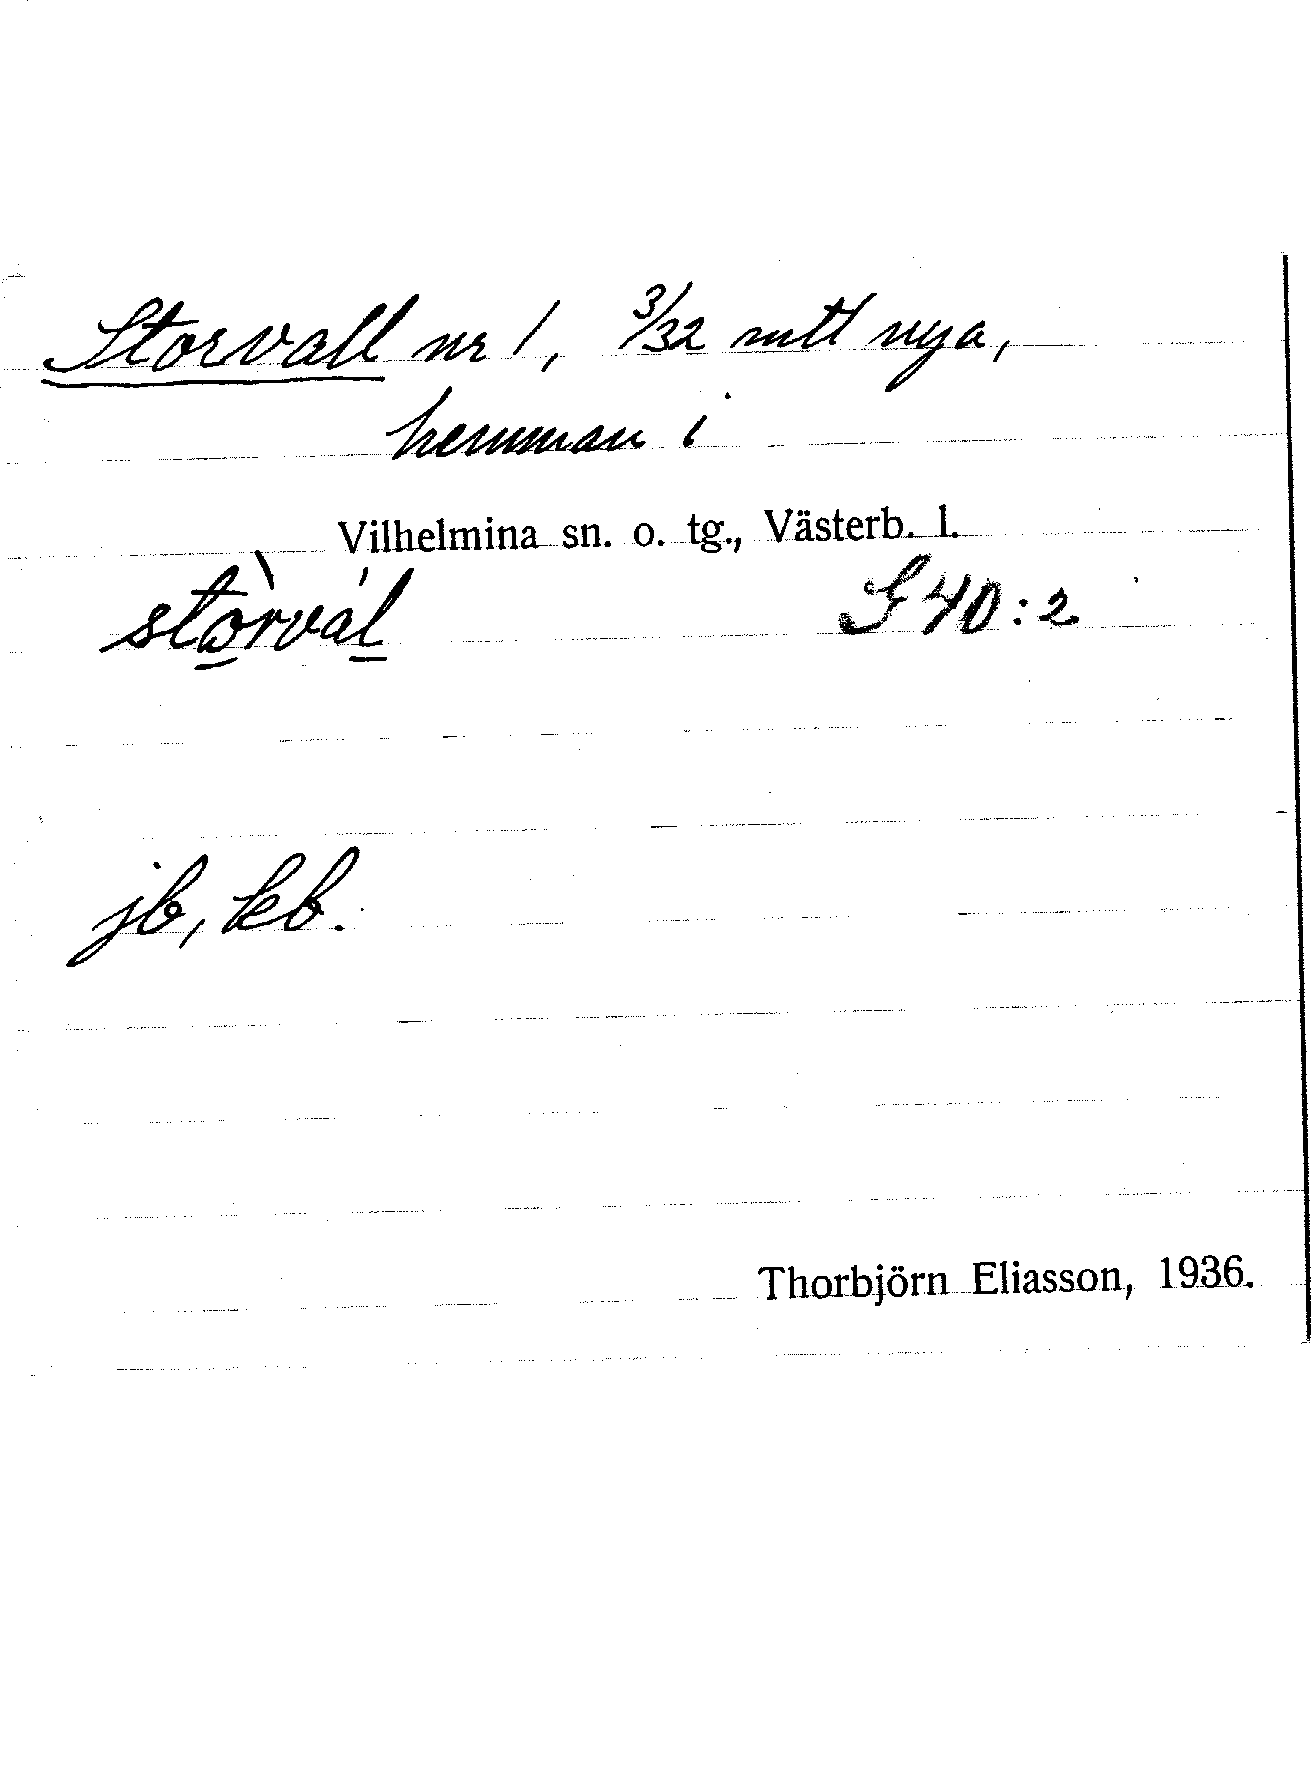 Storvall nr 1, 3/32 mtl nya,
hemman i
Vilhelmina sn. o. tg., Västerb. l.
stò̲rvál̲ S 40:2
jb, kb.
Thorbjörn Eliasson, 1936.